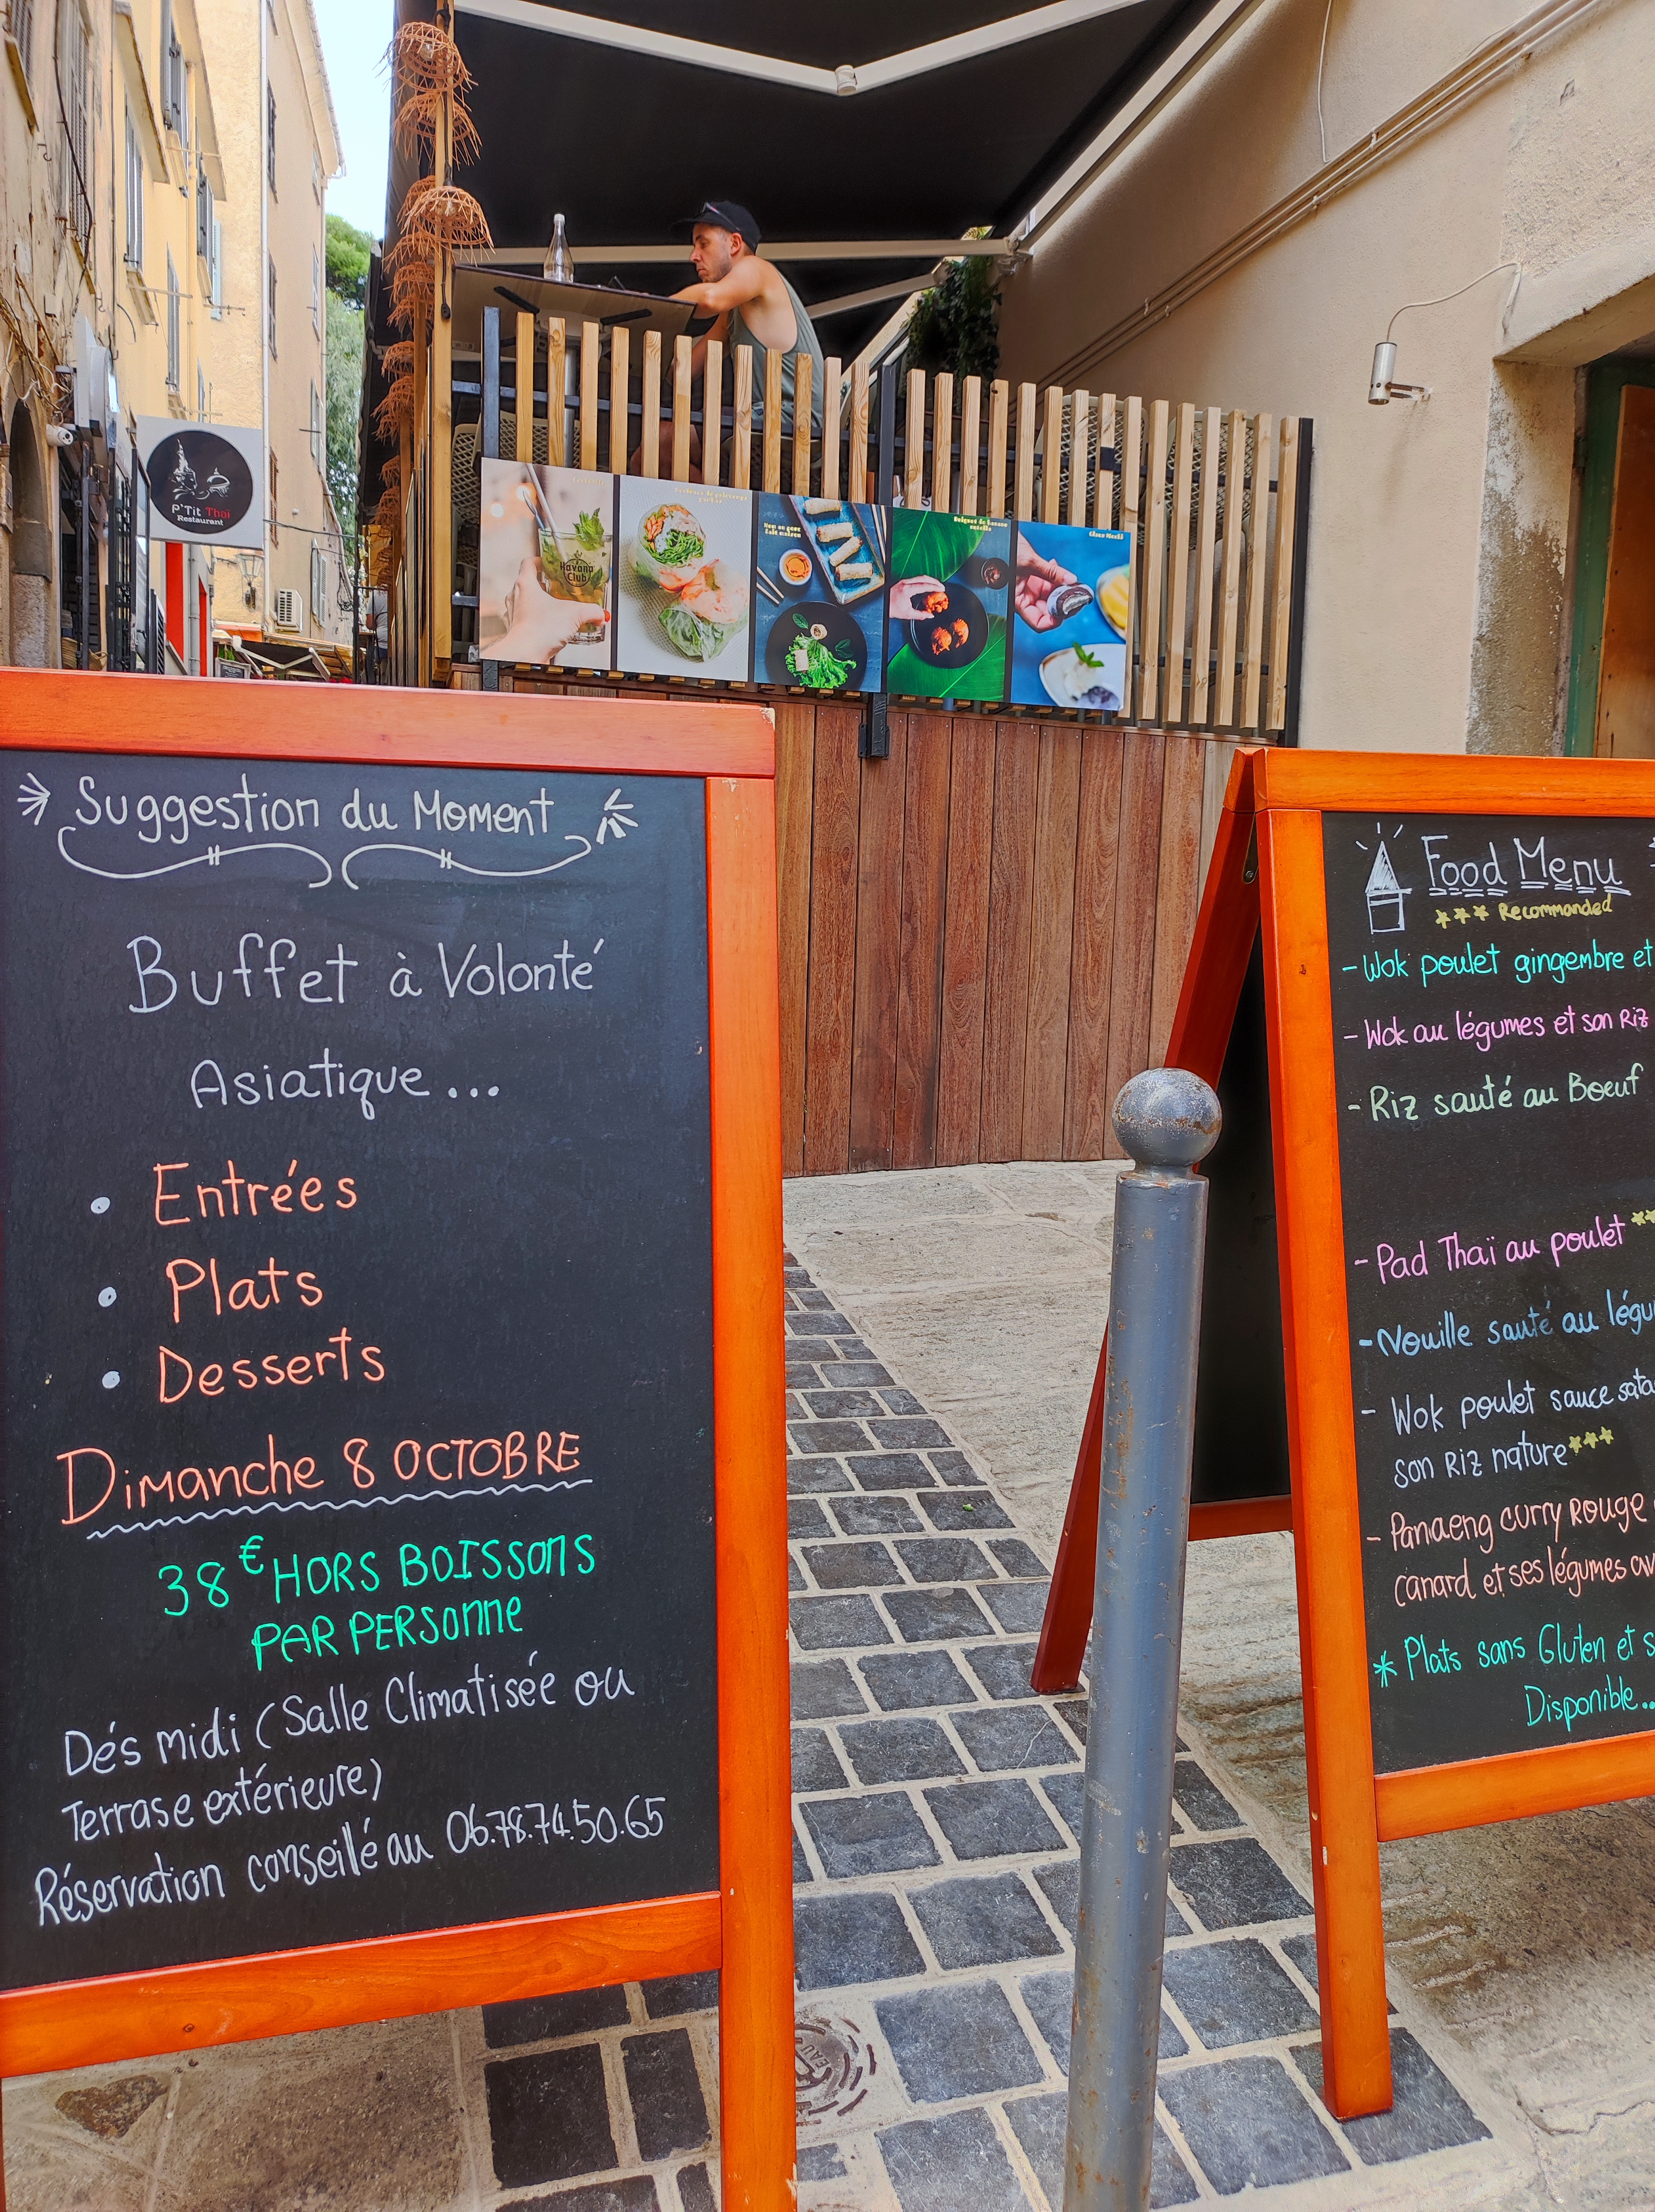 P'Tit Thai
Restaurant
Havana
Club
Nem au porc
fait maison
Beignet de banane
Glace Mochi
Suggestion du Moment
Buffet à Volonté
Asiatique...
• Entrées
• Plats
• Desserts
Dimanche 8 OCTOBRE
38€ HORS BOISSONS
PAR PERSONNE
Dés midi (Salle Climatisée ou
Terrase extérieure)
Réservation conseillé au 06.78.74.50.65
Food Menu
*** Recommanded
- Wok poulet gingembre et
- Wok au légumes et son Riz
- Riz sauté au Boeuf
- Pad Thaï au poulet **
- Nouille sauté au légu
- Wok poulet sauce sata
son Riz nature ***
- Panaeng curry Rouge
canard et ses légumes av
* Plats sans Gluten et s
Disponible...
EAU